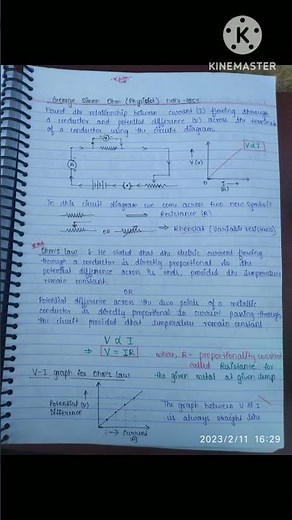 KINEMASTER
George Simon Ohm (Physicist) 1787-1854
Found the relationship between current (I) flowing through
a conductor and potential difference (V) across the terminals
of a conductor using the circuit diagram
V ∝ I
V (V)
A
0
I
In this circuit diagram we come across two new symbols
Resistance (R)
OR
Rheostat (Variable resistance)
Ohm's law : He stated that the electric current flowing
through a conductor is directly proportional to the
potential difference across its ends, provided the temperature
remain constant
OR
Potential difference across the two points of a metallic
conductor is directly proportional to current passing through
the circuit provided that temperature remain constant
V ∝ I
⇒ V = IR
where, R = proportionality constant
called Resistance for
the given metal at given temp
V-I graph for Ohm's law
Potential (V)
Difference
→ Current
The graph between V & I
is always straight line
2023/2/11 16:29